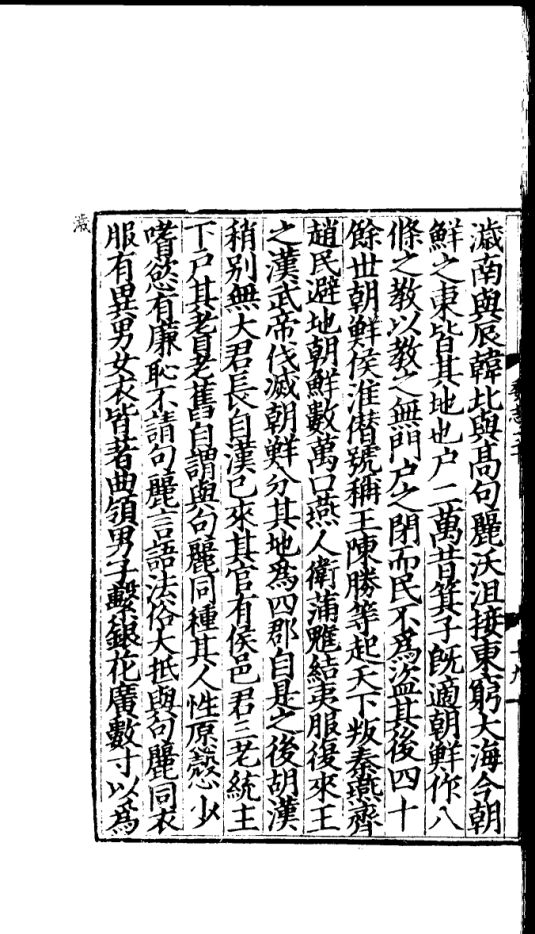 濊南與辰韓北與高句麗沃沮接東窮大海今朝
鮮之東皆其地也户二萬昔箕子既適朝鮮作八
條之教以教之無門户之閉而民不爲盜其後四十
餘世朝鮮侯准僣號稱王陳勝等起天下叛秦燕齊
趙民避地朝鮮數萬口燕人衛蒲魋結夷服復來王
之漢武帝伐滅朝鮮分其地爲四郡自是之後胡漢
稍别無大君長自漢已來其官有侯邑君三老統主
下户其耆老舊自謂與句麗同種其人性原慤少
嗜慾有廉恥不請句麗言語法俗大抵與句麗同衣
服有異男女衣皆著曲領男子繫銀花廣數寸以爲
濊